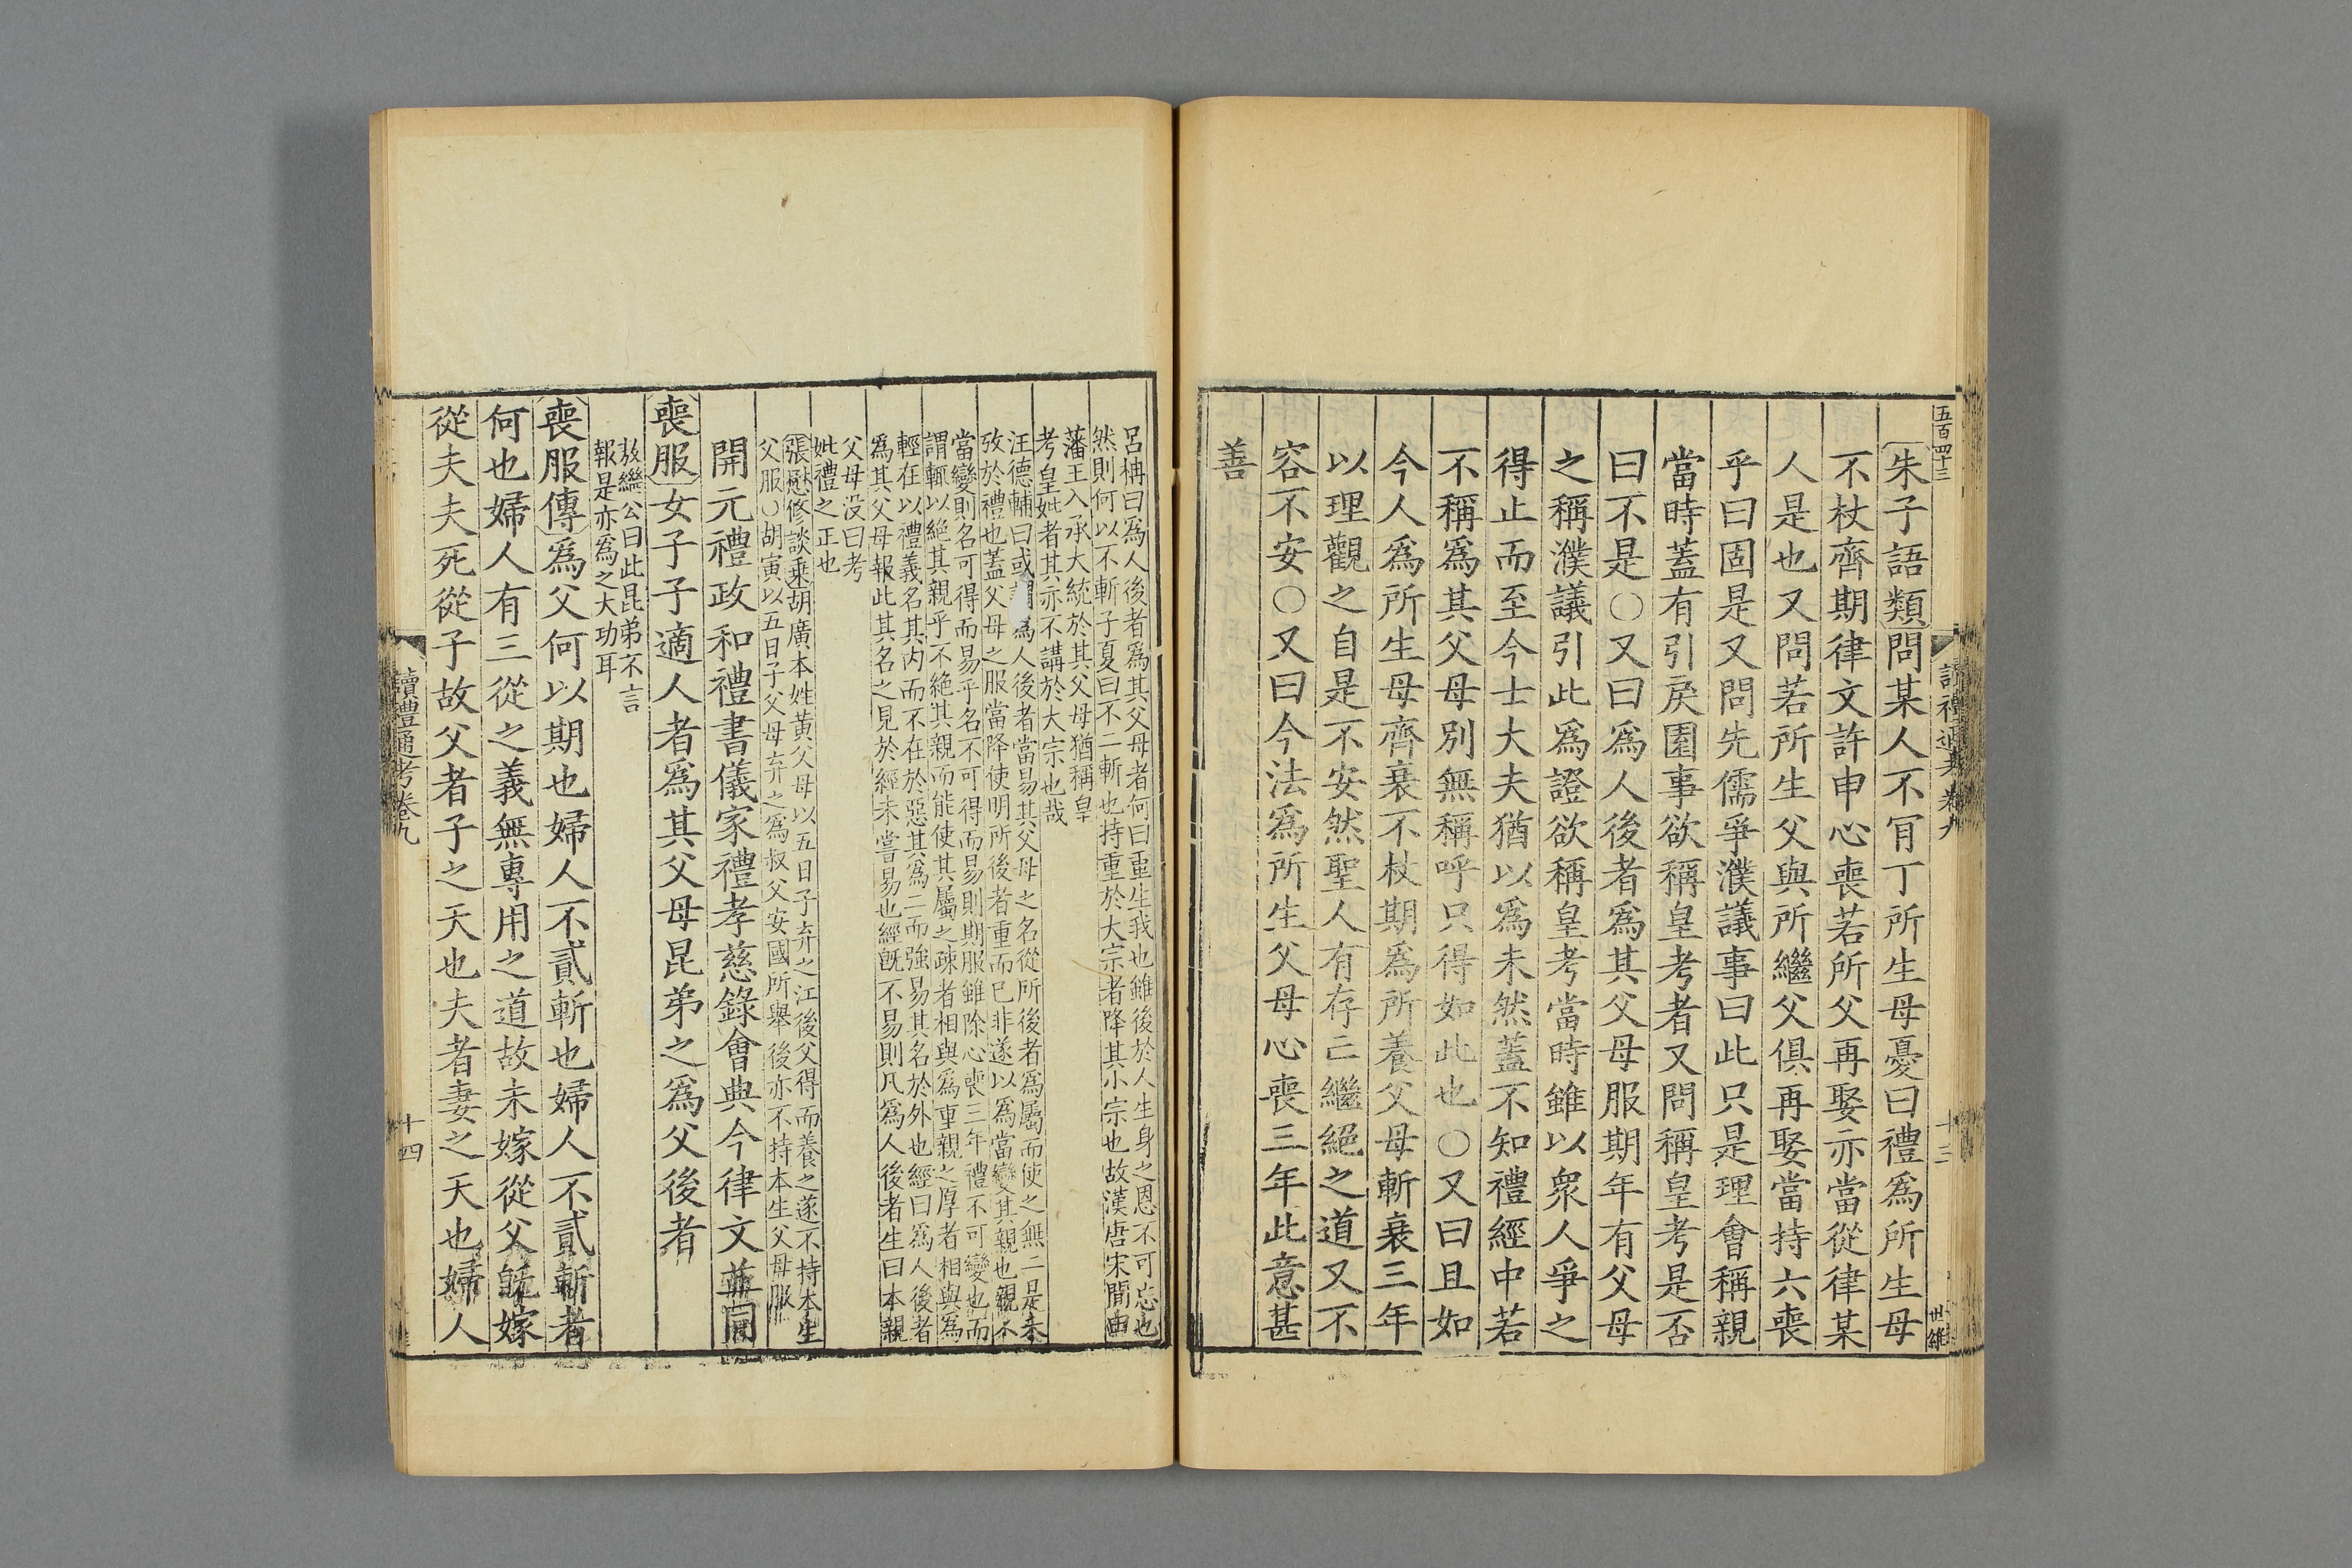 五百四十三
讀禮通考卷九
十三
世維
朱子語類問某人不肎丁所生母憂曰禮爲所生母
不杖齊期律文許申心喪若所父再娶亦當從律某
人是也又問若所生父與所繼父俱再娶當持六喪
乎曰固是又問先儒爭濮議事曰此只是理會稱親
當時蓋有引戾園事欲稱皇考者又問稱皇考是否
曰不是○又曰爲人後者爲其父母服期年有父母
之稱濮議引此爲證欲稱皇考當時雖以衆人爭之
得止而至今士大夫猶以爲未然蓋不知禮經中若
不稱爲其父母別無稱呼只得如此也○又曰且如
今人爲所生母齊衰不杖期爲所養父母斬衰三年
以理觀之自是不安然聖人有存亡繼絕之道又不
容不安○又曰今法爲所生父母心喪三年此意甚
善
呂柟曰爲人後者爲其父母者何曰重生我也雖後於人生身之恩不可忘也
然則何以不斬子夏曰不二斬也持重於大宗者降其小宗也故漢唐宋間由
藩王入承大統於其父母猶稱皇
考皇妣者其亦不講於大宗也哉
汪德輔曰或謂爲人後者當易其父母之名從所後者爲屬而使之無二是未
攷於禮也蓋父母之服當降使明所後者重而已非遂以爲當變其親也親不
當變則名可得而易乎名不可得而易則期服雖除心喪三年禮不可變也而
謂輒以絕其親乎不絕其親而能使其屬之疎者相與爲重親之厚者相與爲
輕在以禮義名其內而不在於惡其爲二而強易其名於外也經曰爲人後者
爲其父母報此其名之見於經未嘗易也經旣不易則凡爲人後者生曰本親
父母没曰考
妣禮之正也
張懋修談乗胡廣本姓黄父母以五日子弃之江後父得而養之遂不持本生
父服○胡寅以五日子父母弃之爲叔父安國所舉後亦不持本生父母服
開元禮政和禮書儀家禮孝慈錄會典今律文竝同
喪服女子子適人者爲其父母昆弟之爲父後者
敖繼公曰此昆弟不言
報是亦爲之大功耳
喪服傳爲父何以期也婦人不貳斬也婦人不貳斬者
何也婦人有三從之義無專用之道故未嫁從父旣嫁
從夫夫死從子故父者子之天也夫者妻之天也婦人
讀禮通考卷九
十四